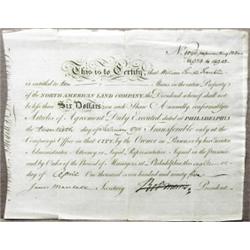 This is to Certify, that William
is entitled to two Shares in the entire Property
of the NORTH AMERICAN LAND COMPANY, the Dividend whereof shall not
be less than SIX DOLLARS on each Share Annually, conformably to
Articles of Agreement Duly Executed dated at PHILADELPHIA
the day of February 1795 Transferable only at the
Company's Office in that CITY, by the Owner in Person, or by his Executor
Administrator, Attorney or Legal Representative Signed in the Presence
and by Order of the Board of Managers, at Philadelphia this
of April one thousand seven hundred and ninety five
James Marshall Secretary President